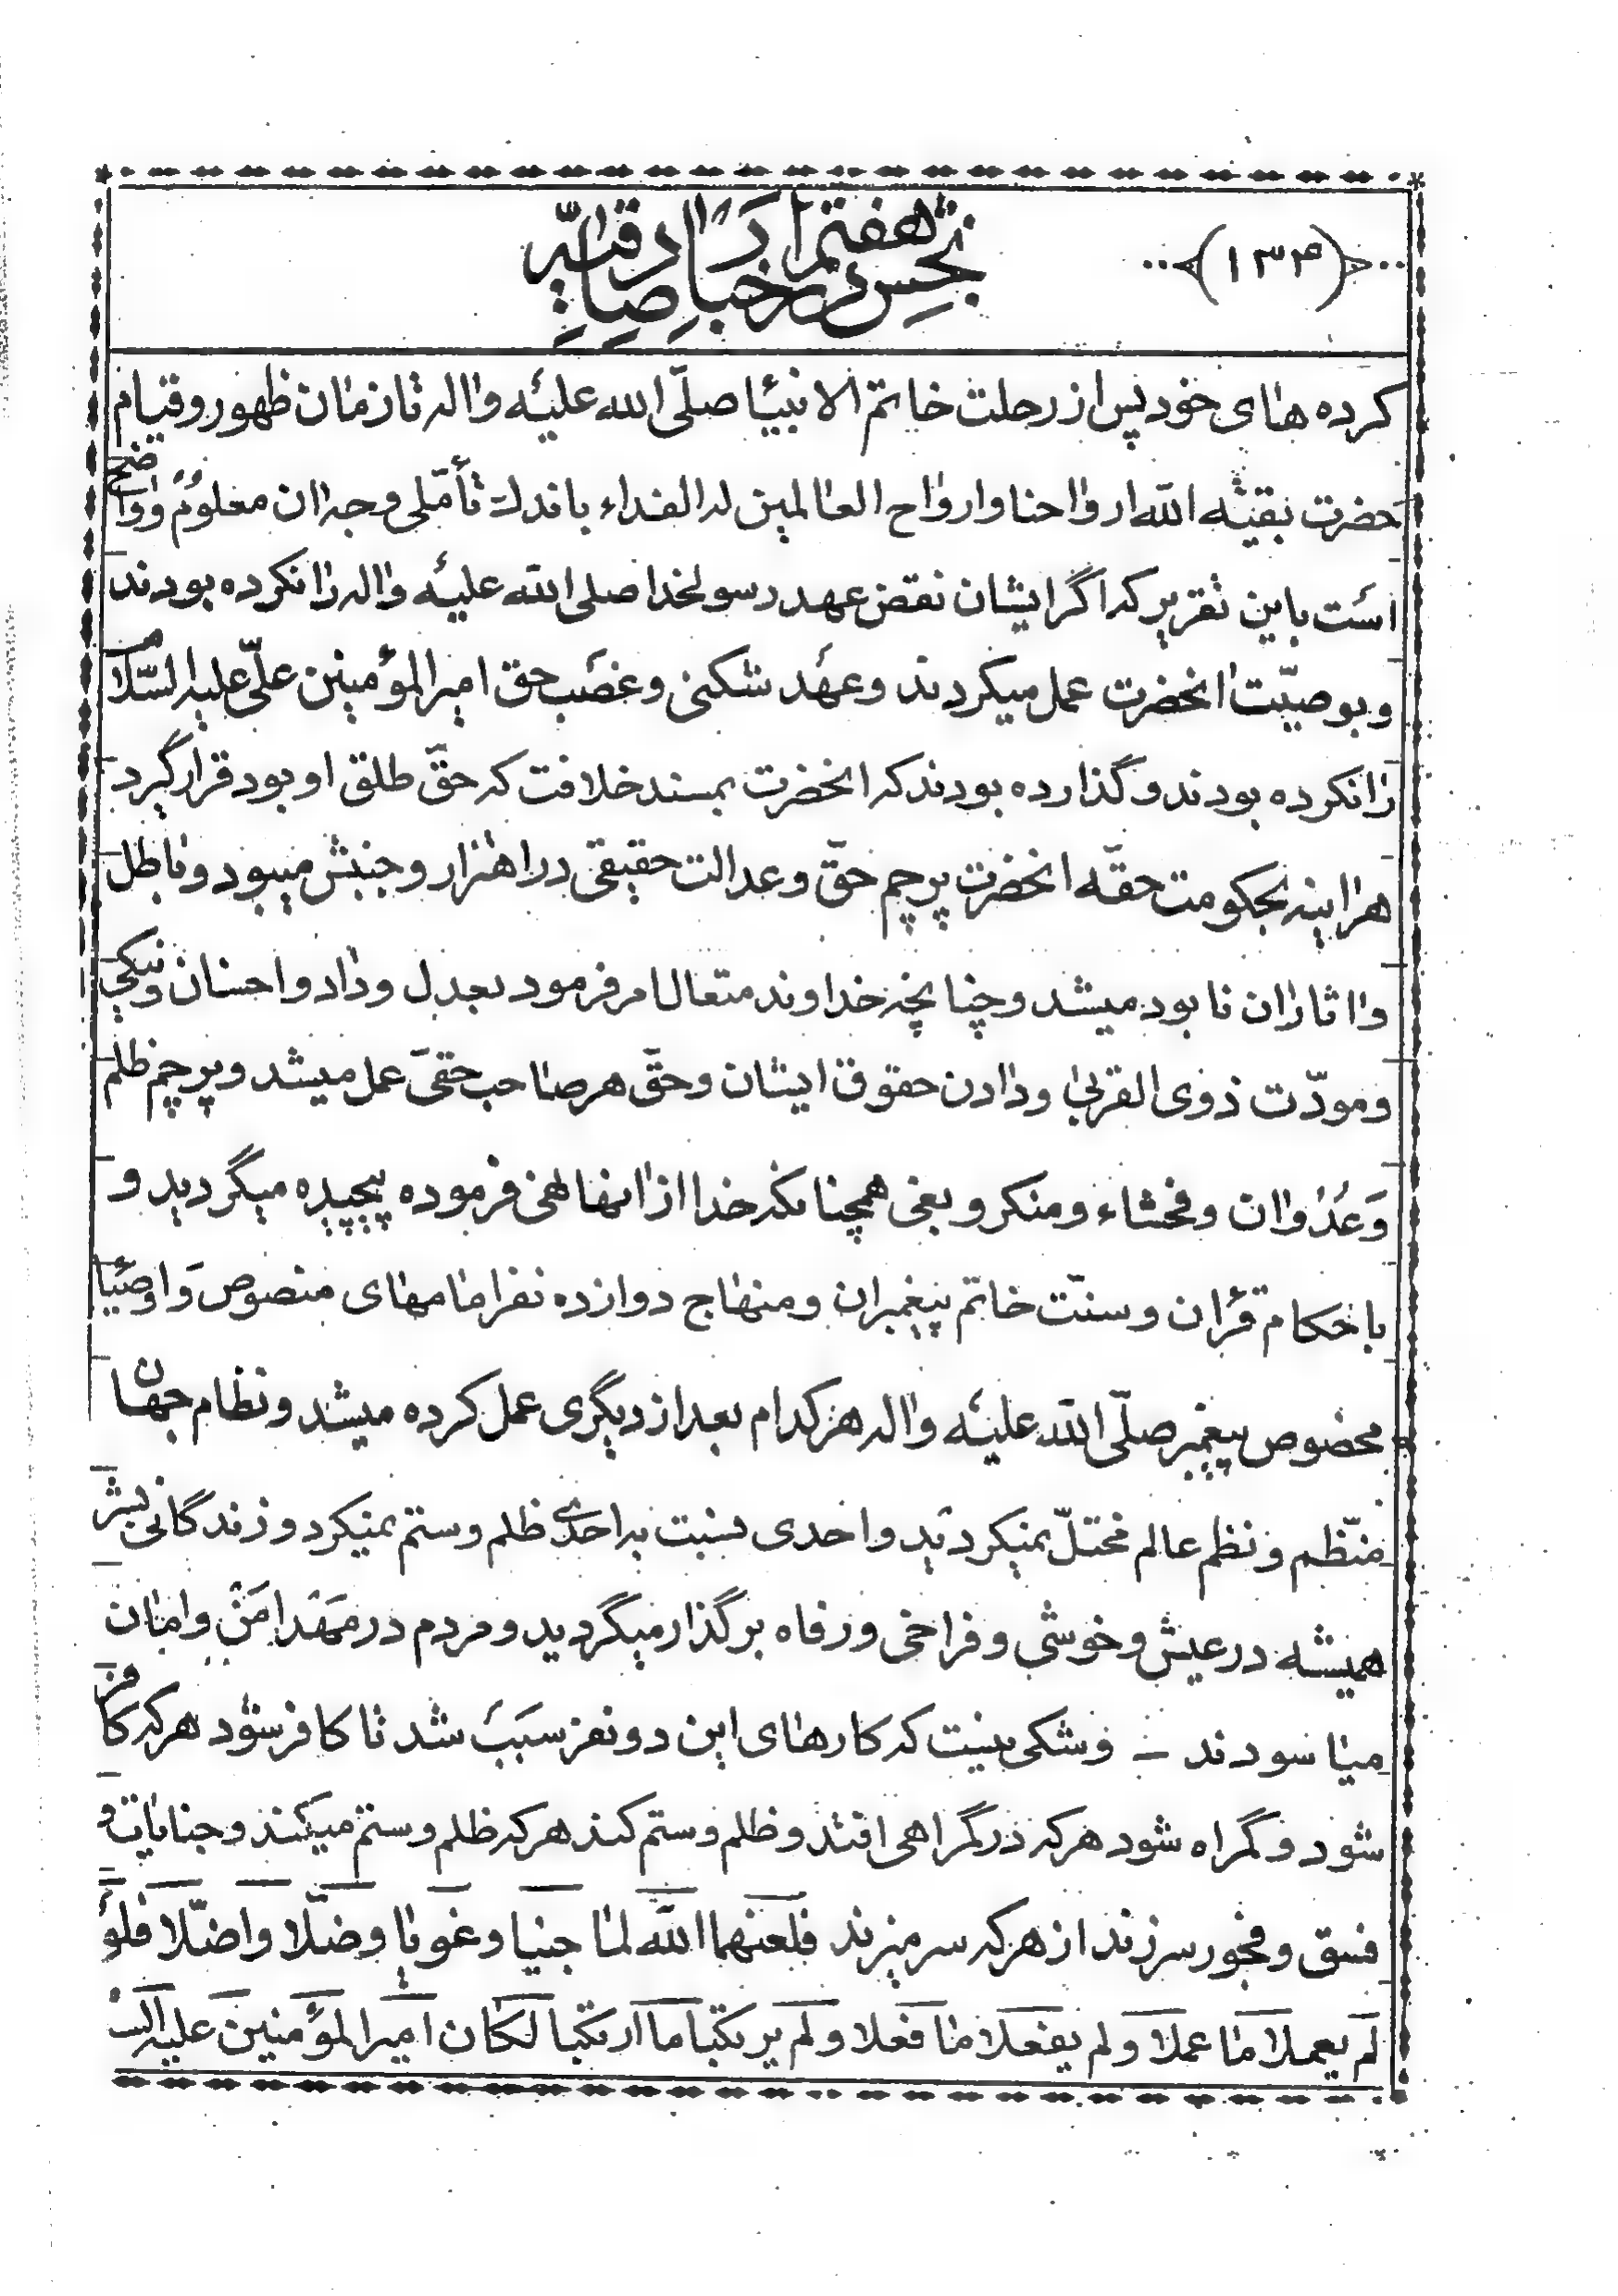 (۱۳۴)
بخش هفتم
کرده هٰای خود پس از رحلت خاتم الانبیٰا صلّی الله علیه واله تا زمٰان ظهور و قیام
حضرت بقیّه الله ارواحنا وارواح العالمین له الفداء باندك تأمّلی وجدان معلوم و واضح
است باین تقریر که اگر ایشان نقض عهد رسولخدا صلی الله علیه واله را نکرده بودند
و بوصیّت انحضرت عمل میکردند وعهد شکنی وغصب حق امیرالمؤمنین علیّ علیه السّلام
را نکرده بودند و گذارده بودند که انحضرت بمسند خلافت که حقّ طلق او بود قرار گیرد
هراینه بحکومت حقّه انحضرت پرچم حقّ وعدالت حقیقی در اهتزار وجنبش میبود و باطل
واثاران نابود میشد وچنانچه خداوند متعال امر فرمود بعدل وداد واحسان ونیکی
ومودّت ذوی القربی ودادن حقوق ایشان وحقّ هر صاحب حقی عمل میشد وپرچم ظلم
وَعُدوٰان وفحشاء ومنکر وبغی همچنانکه خدا از انها نهی فرموده پیچیده میگردید و
باحکام قرٰان وسنّت خاتم پیغمبران ومنهاج دوازده نفر امامهٰای منصوص وَاوصیٰا
مخصوص پیغمبر صلّی الله علیه واله هر کدام بعد از دیگری عمل کرده میشد ونظام جهان
منظّم ونظم عالم مختلّ نمیکردید واحدی نسبت به احدی ظلم وستم نمیکرد وزندگانی بشر
همیشه در عیش وخوشی وفراخی ورفاه برگذار میگردید ومردم در مَهْد امَنْ وامٰان
میٰاسودند ــ وشکی نیست که کارهٰای این دو نفر سبَبَ شد تا کافر شود هر که کافر
شود وگمراه شود هرکه در گمراهی افتد وظلم وستم کند هرکه ظلم وستم میکند وجنایات و
فسق وفجور سرزند از هرکه سر میزند فلعنهما الله لمٰا جنیا وغویٰا وضلّا واضلّا فلو
لم یعملا مٰا عملا ولم یفعلا مٰا فعلا ولم یرتکبا ما ارتکبا لکان امیرالمؤمنین علیه الس